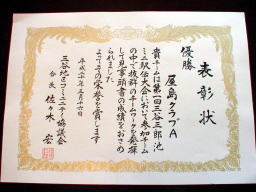 表彰状
優勝
屋島クラブA
貴チームは第一回三谷三郎池
ミニ駅伝大会において参加チーム
の中で抜群のチームワークを発揮
して見事頭書の成績をおさめ
られました
よってその栄誉を賞します
平成二十年三月十六日
三谷地区コミュニティ協議会
会長 佐々木 宏